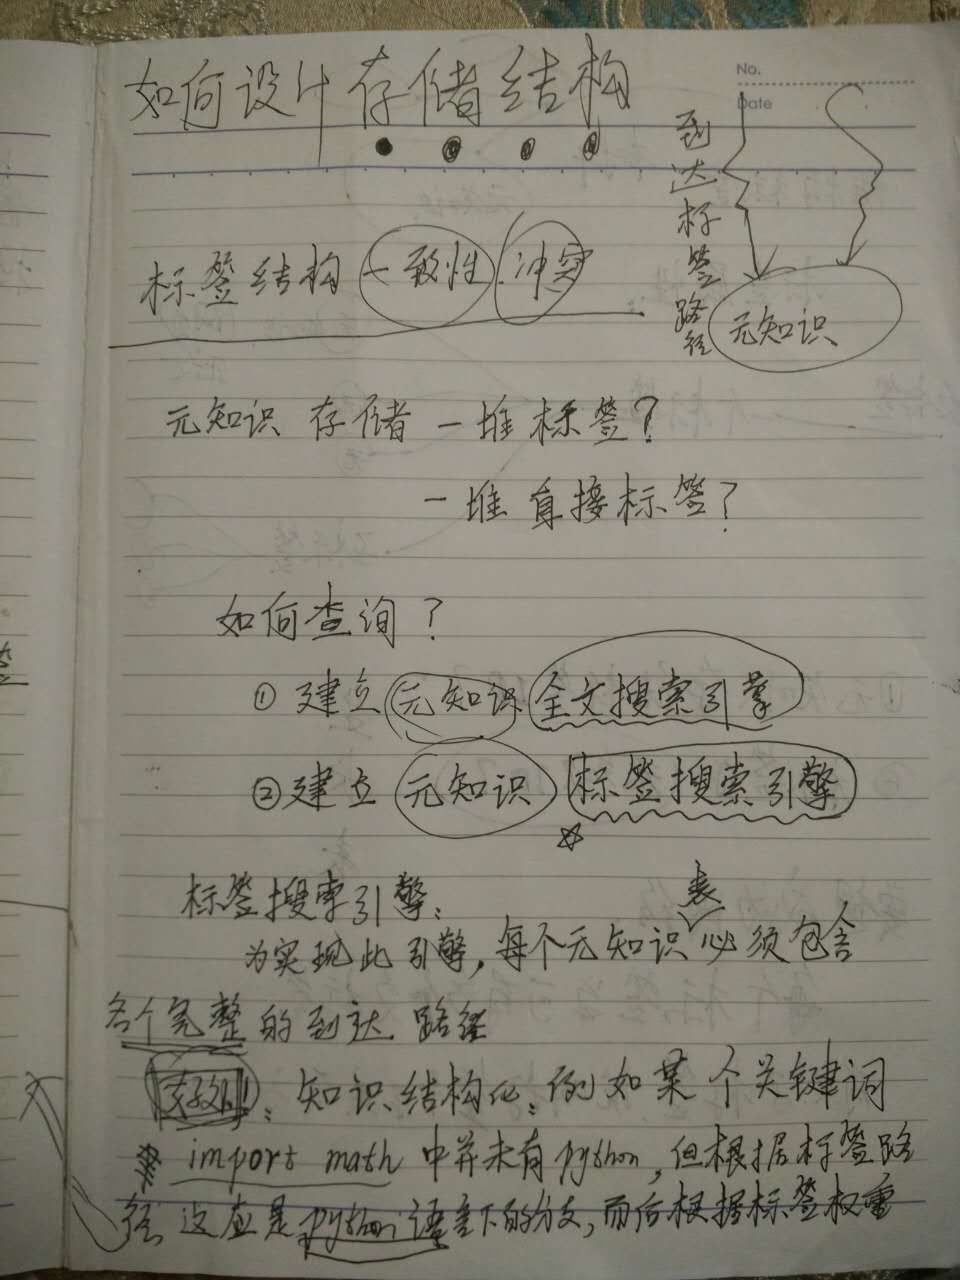 如何设计存储结构
No.
Date
到达标签路径
元知识
标签结构一致性 冲突
元知识 存储 一堆标签？
一堆直接标签？
如何查询？
① 建立 元知识 全文搜索引擎
② 建立 元知识 标签搜索引擎
标签搜索引擎：
为实现此引擎，每个元知识表必须包含
各个完整的到达路径
好处！：知识结构化：例如某个关键词
import math 中并未有python，但根据标签路
径 这应是python语言下的分支，而后根据标签权重